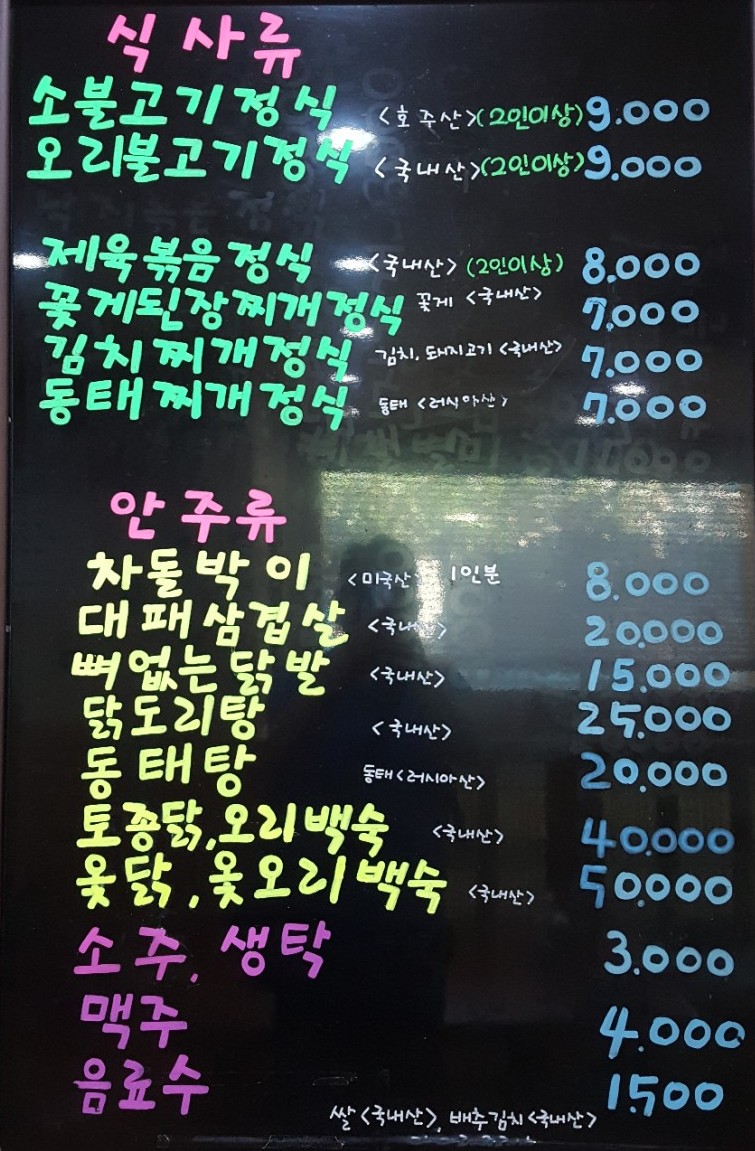 식사류
소불고기정식 <호주산>(2인이상) 9.000
오리불고기정식 <국내산>(2인이상) 9.000
제육볶음정식 <국내산> (2인이상) 8.000
꽃게된장찌개정식 꽃게 <국내산> 7.000
김치찌개정식 김치, 돼지고기 <국내산> 7.000
동태찌개정식 동태 <러시아산> 7.000
안주류
차돌박이 <미국산> 1인분 8.000
대패삼겹살 <국내산> 20.000
뼈없는닭발 <국내산> 15.000
닭도리탕 <국내산> 25.000
동태탕 동태<러시아산> 20.000
토종닭,오리백숙 <국내산> 40.000
옻닭,옻오리백숙 <국내산> 50.000
소주, 생탁 3.000
맥주 4.000
음료수 1.500
쌀<국내산>, 배추김치<국내산>